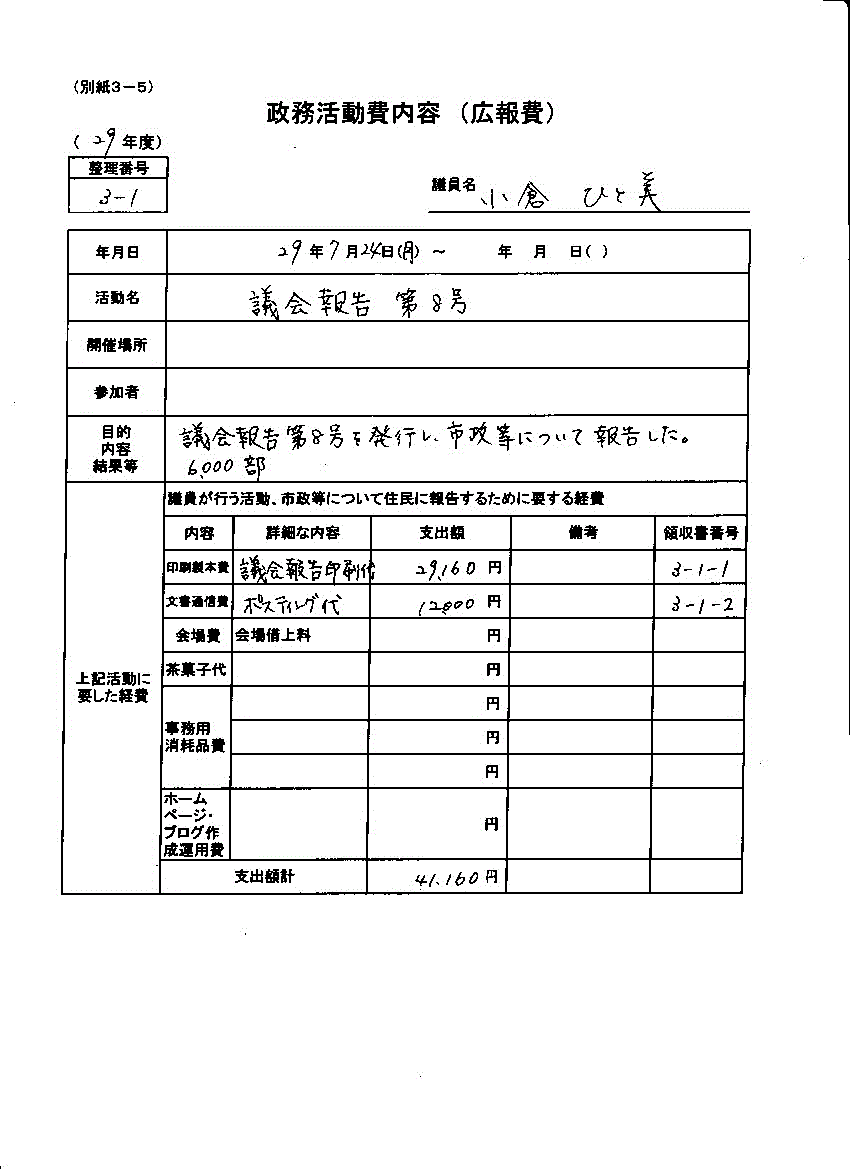 （別紙３－５）
政務活動費内容（広報費）
（ 29 年度）
整理番号
3-1
議員名 小倉 ひと美
年月日 29年7月24日(月) ～ 年 月 日( )
活動名 議会報告 第8号
開催場所
参加者
目的
内容
結果等
議会報告第8号を発行し、市政等について報告した。
6,000部
上記活動に
要した経費
議員が行う活動、市政等について住民に報告するために要する経費
内容 詳細な内容 支出額 備考 領収書番号
印刷製本費 議会報告印刷代 29,160 円 3-1-1
文書通信費 ポスティング代 12,000 円 3-1-2
会場費 会場借上料 円
茶菓子代 円
事務用
消耗品費
円
円
円
ホーム
ページ・
ブログ作
成運用費
円
支出額計 41,160円